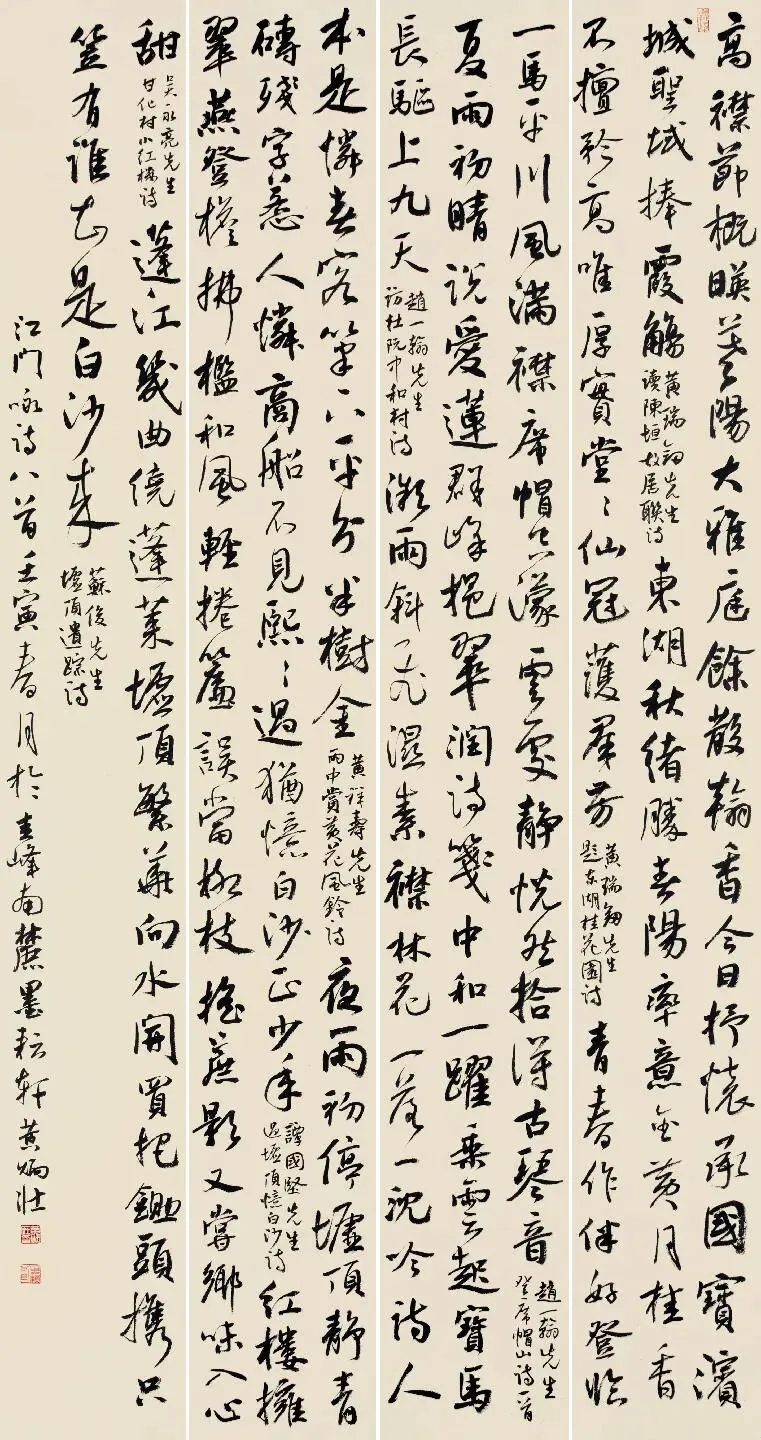 高襟節概暎荟陽大雅庭餘散翰香今日抒懷承國寶濱
城聖域捧霞觴黃瑞鈞先生讀陳垣故居聯詩東湖秋緒勝春陽率意金黃月桂香
不擅矜高唯厚實堂〻仙冠護羣芳黃瑞鈞先生題東湖桂花園詩青春作伴好登臨
一馬平川風滿襟席帽空濛雲處靜恍然拾得古琴音趙一翰先生登席帽山詩一首
夏雨初晴說愛蓮群峰挹翠潤詩箋中和一躍乘雲起寶馬
長驅上九天趙一翰先生訪杜阮中和村詩微雨斜飛濕素襟林花一落一沉吟詩人
本是憐春客筆下平分半樹金黃祥壽先生雨中賞黃花風鈴詩夜雨初停墟頂靜青
磚殘字惹人憐高船不見熙〻過猶憶白沙正少年譚國堅先生過墟頂憶白沙詩紅樓擁
翠燕登樓拂檻和風輕捲簾誤當柳枝搖燕影又嘗鄉味入心
甜吳永亮先生甘化村小紅樓詩蓬江幾曲繞蓬萊墟頂繁華向水開買把鋤頭攜只
笠有誰知是白沙來蘇俊先生墟頂遺踪詩
江門咏詩八首壬寅春月於圭峰南麓墨耘軒黃炳壯